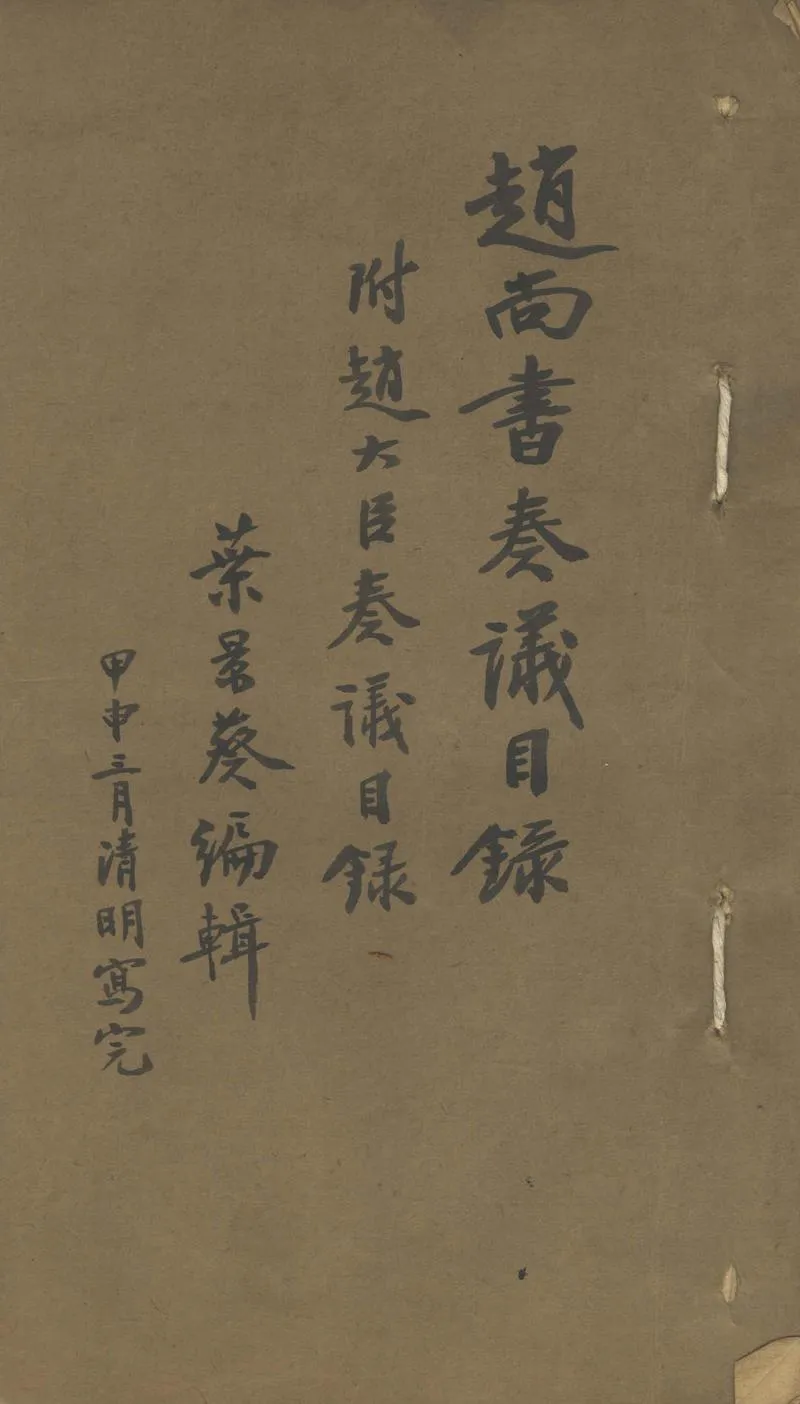 趙尚書奏議目錄
附趙大臣奏議目録
葉景葵編輯
甲申三月清明寫完